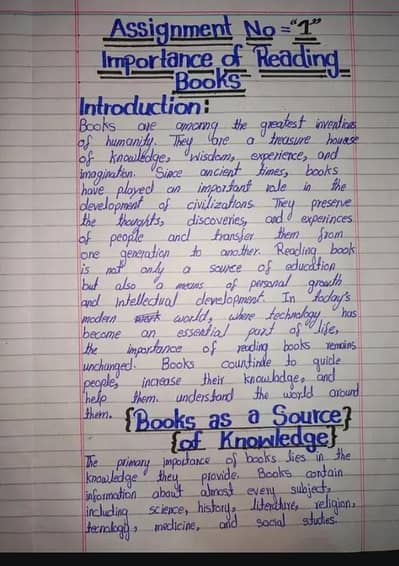 Assignment No = "1"
Importance of Reading
Books
Introduction:
Books are among the greatest inventions
of humanity. They are a treasure house
of knowledge, wisdom, experience, and
imagination. Since ancient times, books
have played an important role in the
development of civilizations. They preserve
the thoughts, discoveries, and experinces
of people and transfer them from
one generation to another. Reading book
is not only a source of education
but also a means of personal growth
and intellectual development. In today's
modern world, where technology has
become an essential part of life,
the importance of reading books remains
unchanged. Books countinde to guide
people, increase their knowladge, and
help them. understand the world around
them.
{Books as a Source}
{of Knowledge}
The primary importance of books lies in the
knowledge they provide. Books contain
information about almost every subject,
including science, history, literature, religion,
tecnology, medicine, and social studies.